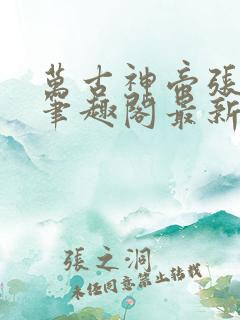 萬古神帝張
筆趣閣最新
張之洞
未經同意禁止轉載